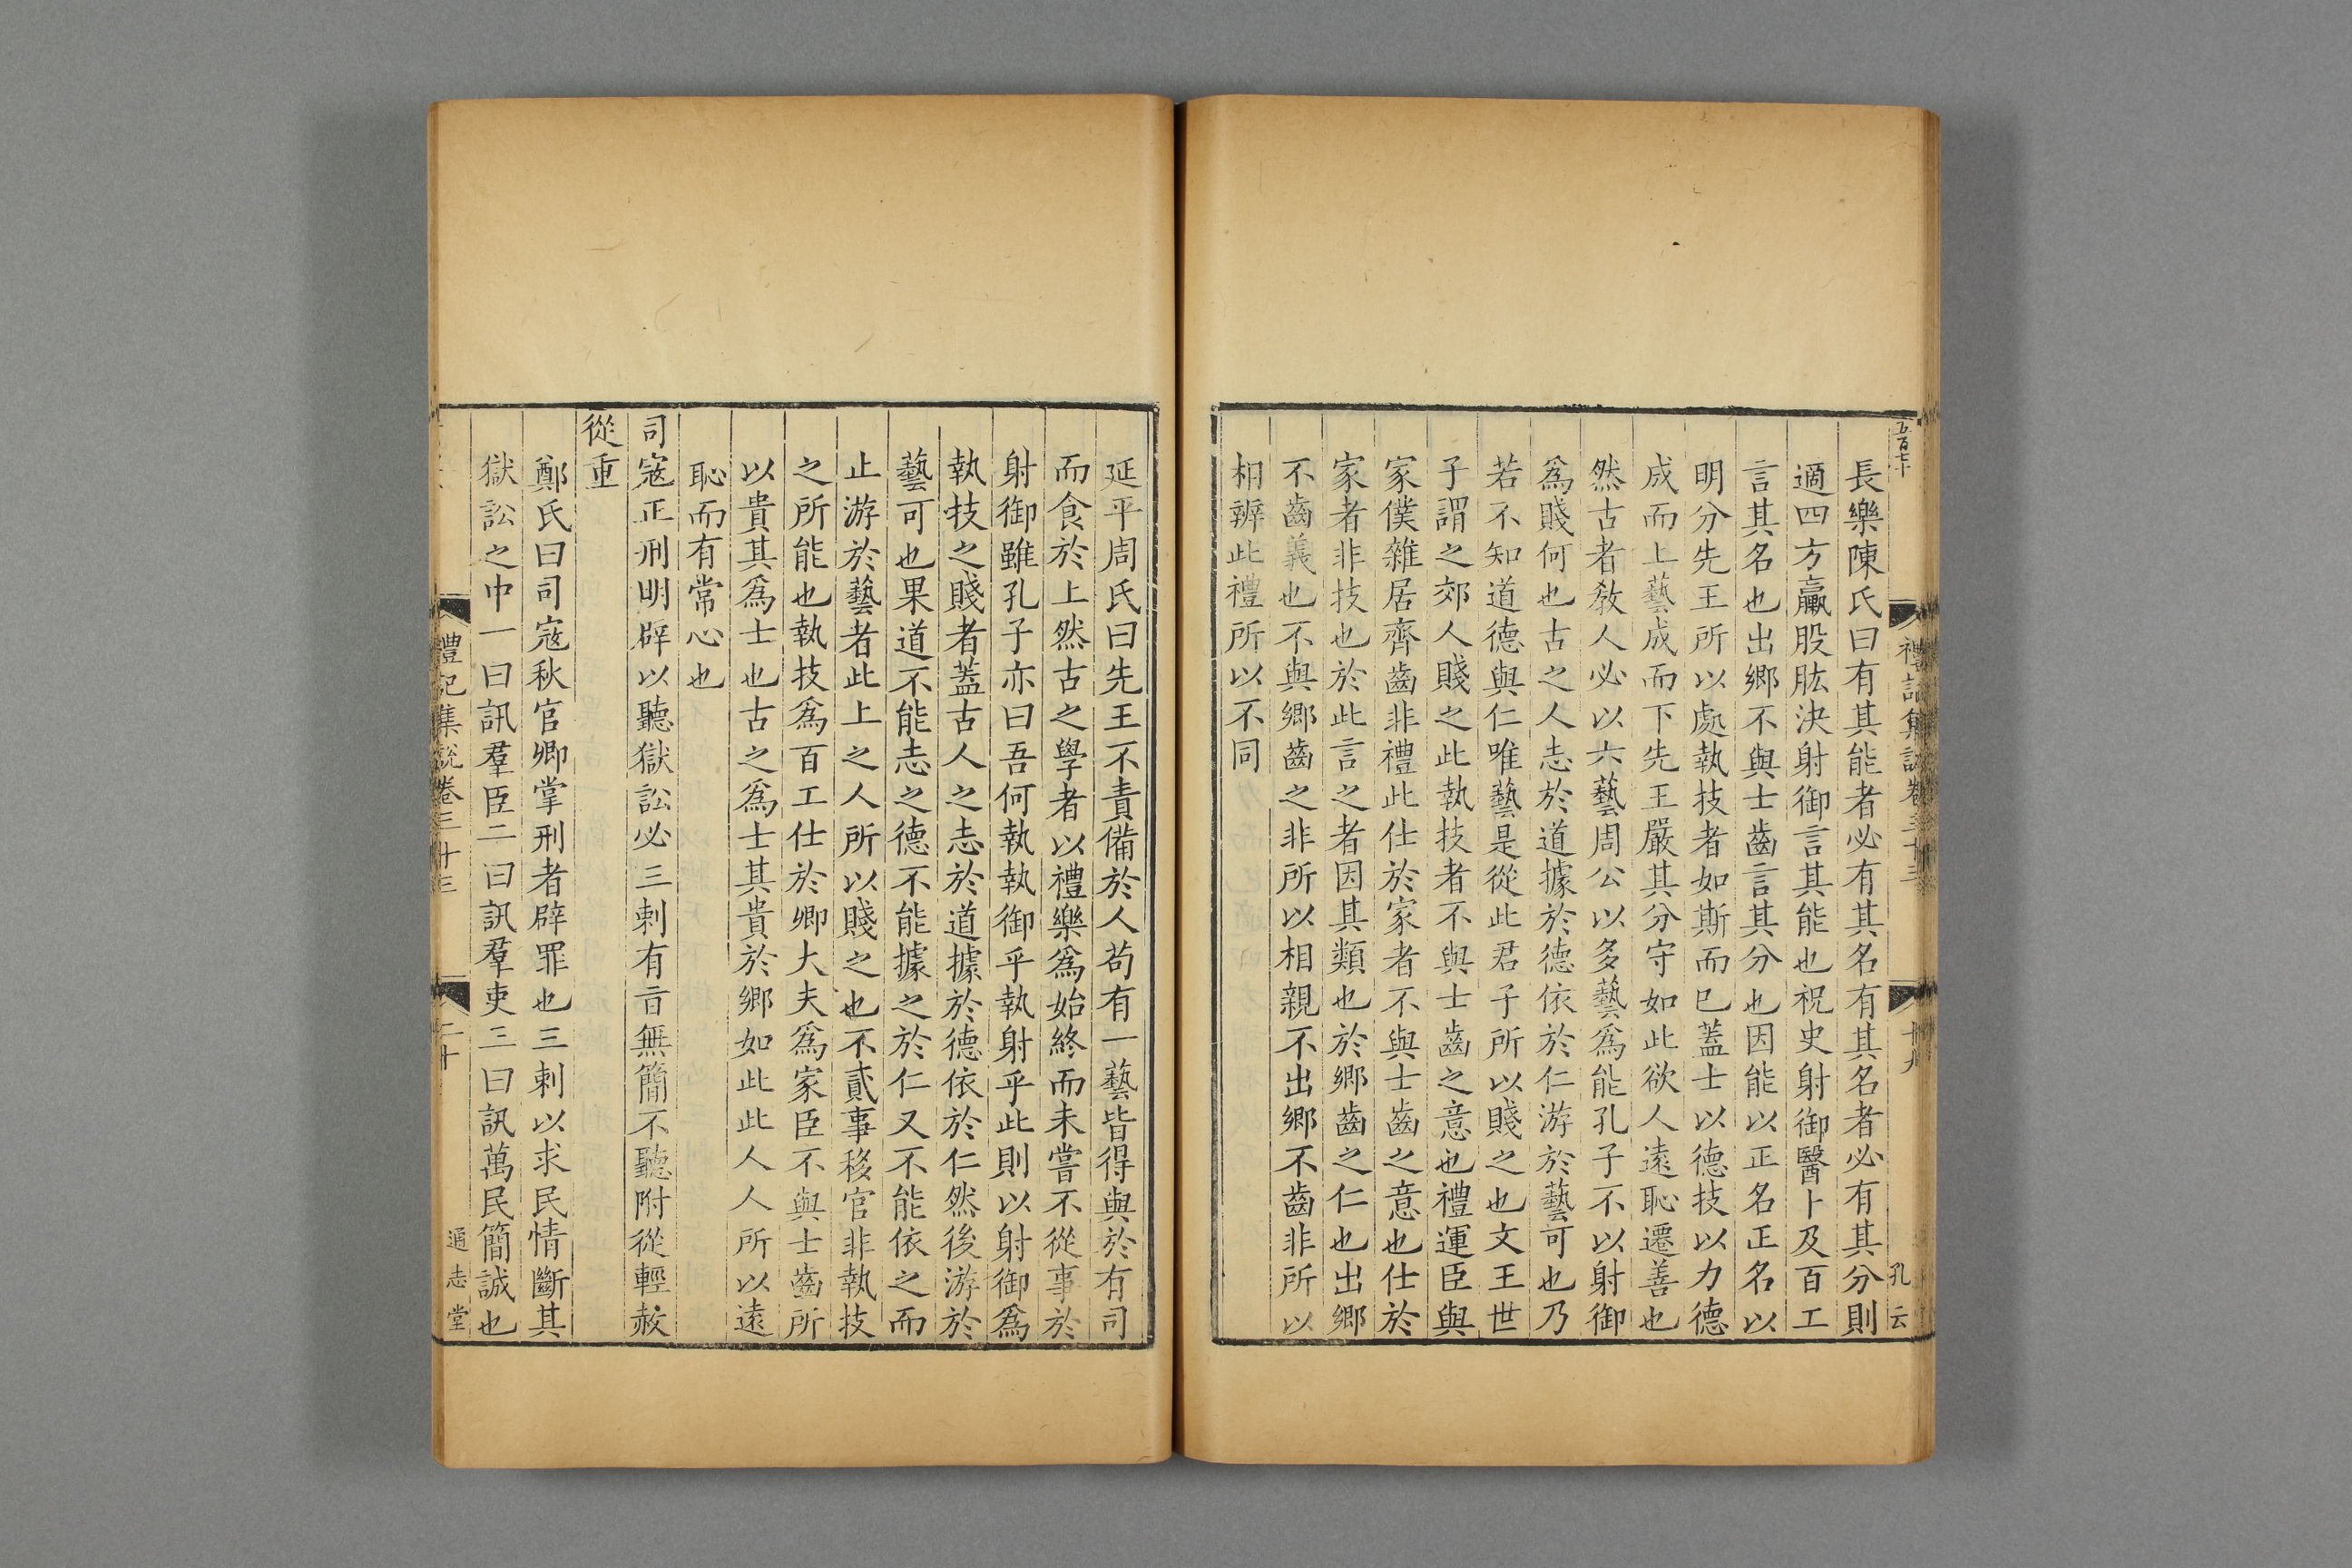 五百七十
禮記集說卷三十三
十九
孔云
長樂陳氏曰有其能者必有其名有其名者必有其分則
適四方贏股肱決射御言其能也祝史射御醫卜及百工
言其名也出鄉不與士齒言其分也因能以正名正名以
明分先王所以處執技者如斯而已蓋士以德技以力德
成而上藝成而下先王嚴其分守如此欲人遠恥遷善也
然古者敎人必以六藝周公以多藝爲能孔子不以射御
爲賤何也古之人志於道據於德依於仁游於藝可也乃
若不知道德與仁唯藝是從此君子所以賤之也文王世
子謂之郊人賤之此執技者不與士齒之意也禮運臣與
家僕雜居齊齒非禮此仕於家者不與士齒之意也仕於
家者非技也於此言之者因其類也於鄉齒之仁也出鄉
不齒義也不與鄉齒之非所以相親不出鄉不齒非所以
相辨此禮所以不同
延平周氏曰先王不責備於人苟有一藝皆得與於有司
而食於上然古之學者以禮樂爲始終而未嘗不從事於
射御雖孔子亦曰吾何執執御乎執射乎此則以射御爲
執技之賤者蓋古人之志於道據於德依於仁然後游於
藝可也果道不能志之德不能據之於仁又不能依之而
止游於藝者此上之人所以賤之也不貳事移官非執技
之所能也執技爲百工仕於卿大夫爲家臣不與士齒所
以貴其爲士也古之爲士其貴於鄉如此此人人所以遠
恥而有常心也
司寇正刑明辟以聽獄訟必三刺有㫖無簡不聽附從輕赦
從重
鄭氏曰司寇秋官卿掌刑者辟罪也三刺以求民情斷其
獄訟之中一曰訊羣臣二曰訊羣吏三曰訊萬民簡誠也
禮記集說卷三十三
二十
通志堂